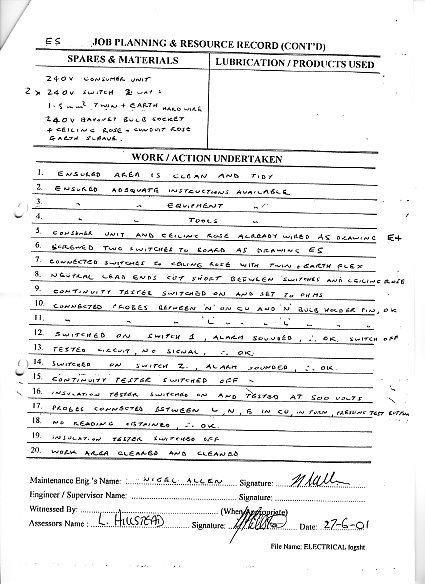 E5
JOB PLANNING & RESOURCE RECORD (CONT'D)
SPARES & MATERIALS
LUBRICATION / PRODUCTS USED
240V CONSUMER UNIT
2 x 240V SWITCH 2 WAY
1.5mm² TWIN + EARTH HARD WIRE
240V BAYONET BULB SOCKET
+ CEILING ROSE + CONDUIT ROSE
EARTH SLEAVE.
WORK / ACTION UNDERTAKEN
1. ENSURED AREA IS CLEAN AND TIDY
2. ENSURED ADEQUATE INSTRUCTIONS AVAILABLE
3. " EQUIPMENT "
4. " TOOLS "
5. CONSUMER UNIT AND CEILING ROSE ALREADY WIRED AS DRAWING E4
6. SCREWED TWO SWITCHES TO BOARD AS DRAWING E5
7. CONNECTED SWITCHES TO CEILING ROSE WITH TWIN + EARTH FLEX
8. NEUTRAL LEAD ENDS CUT SHORT BETWEEN SWITCHES AND CEILING ROSE
9. CONTINUITY TESTER SWITCHED ON AND SET TO OHMS
10. CONNECTED PROBES BETWEEN 'N' ON CU AND 'N' BULB HOLDER PIN, OK
11. " " " 'L' " " 'L' " " "
12. SWITCHED ON SWITCH 1, ALARM SOUNDED, ∴ OK. SWITCH OFF
13. TESTED CIRCUIT, NO SIGNAL, ∴ OK.
14. SWITCHED ON SWITCH 2, ALARM SOUNDED, ∴ OK.
15. CONTINUITY TESTER SWITCHED OFF
16. INSULATION TESTER SWITCHED ON AND TESTED AT 500 VOLTS
17. PROBES CONNECTED BETWEEN L, N, E IN CU, IN TURN, PRESSING TEST BUTTON
18. NO READING OBTAINED ∴ OK.
19. INSULATION TESTER SWITCHED OFF
20. WORK AREA CLEARED AND CLEANED
Maintenance Eng.'s Name: NIGEL ALLEN Signature: N Allen
Engineer / Supervisor Name: Signature:
Witnessed By: (When Appropriate)
Assessors Name: L. HILLSTEAD Signature: Date: 27-6-01
File Name: ELECTRICAL logsht